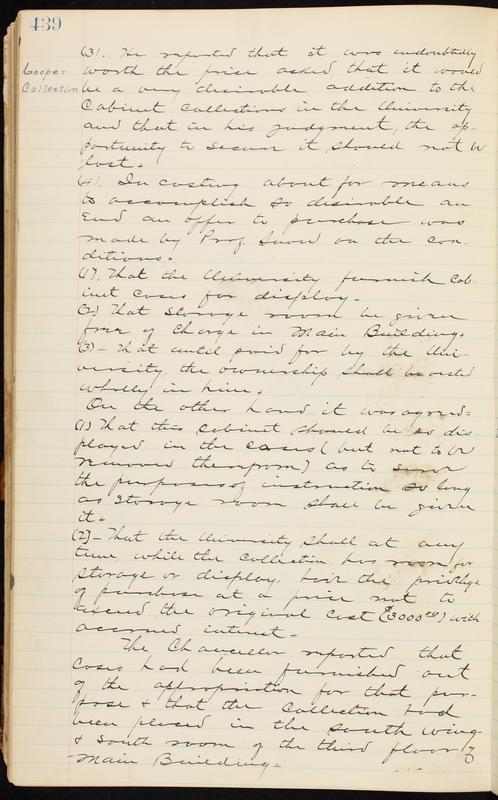 439
Cooper
Collection
(3). He reported that it was undoubtedly
worth the price asked, that it would
be a very desirable addition to the
Cabinet collections in the University
and that in his judgment, the op-
portunity to secure it should not be
lost.
(4). In casting about for means
to accomplish so desirable an
End an offer to purchase was
made by Prof. Snow on the con-
ditions.
(1). That the University furnish Cab-
inet cases for display.
(2) That storage room be given
free of charge in Main Building.
(3) - That until paid for by the Uni-
versity, the ownership shall be vested
wholly in him.
On the other hand it was agreed:
(1) That this cabinet should be so dis-
played in the cases (but not to be
removed therefrom) as to serve
the purposes of instruction so long
as storage room shall be given
it.
(2) - That the University shall at any
time, while the Collection has room for
storage or display, have the privilege
of purchase at a price not to
exceed the original cost ($3000.00) with
accrued interest.
The Chancellor reported that
cases had been furnished out
of the appropriation for that pur-
pose & that the Collection had
been placed in the south wing
& south room of the third floor of
Main Building.